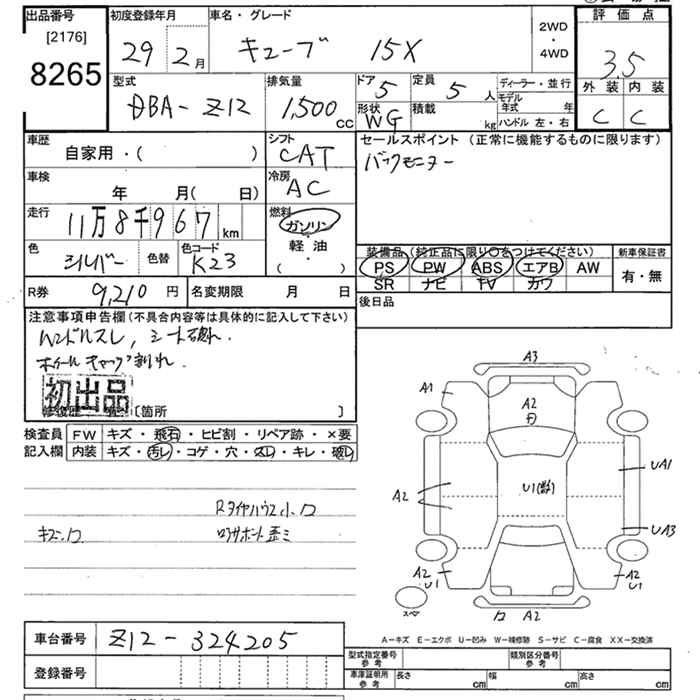 出品番号 初度登録年月 車名・グレード 評価点
[2176]
8265
29 2月 キューブ 15X 2WD・4WD 3.5
型式 排気量 ドア 定員 ディーラー・並行 外装 内装
DBA-Z12 1,500cc 5 5人 モデル年式 年 C C
形状 WG 積載 kg ハンドル 左・右
車歴 シフト セールスポイント (正常に機能するものに限ります)
自家用・( ) CAT バックモニター
車検 冷房
年 月( 日) AC
走行 燃料
11万8千967km ガソリン
軽油
・
( )
色 色替 色コード 装備品 (純正品に限り○をつけてください) 新車保証書
シルバー K23 PS PW ABS エアB AW 有・無
SR ナビ TV カワ
R券 9,210円 名変期限 月 日 後日品
注意事項申告欄(不具合内容等は具体的に記入して下さい)
ハンドルスレ, シート破れ.
ホイールキャップ割れ.
初出品
[箇所 ]
検査員 FW キズ・飛石・ヒビ割・リペア跡・×要
記入欄 内装 キズ・汚レ・コゲ・穴・スレ・キレ・破レ
Rタイヤハウス小凹
キズ、凹 ロアサポート歪ミ
A3
A1 A1
A2
UA1
U1(数)
A2
UA3
A2 U1 A2 U1
スペア
凹 A2
A-キズ E-エクボ U-凹み W-補修跡 S-サビ C-腐食 XX-交換済
車台番号 Z12-324205
型式指定番号 参考 類別区分番号 参考
登録番号
車庫証明用 参考 長さ cm 幅 cm 高さ cm